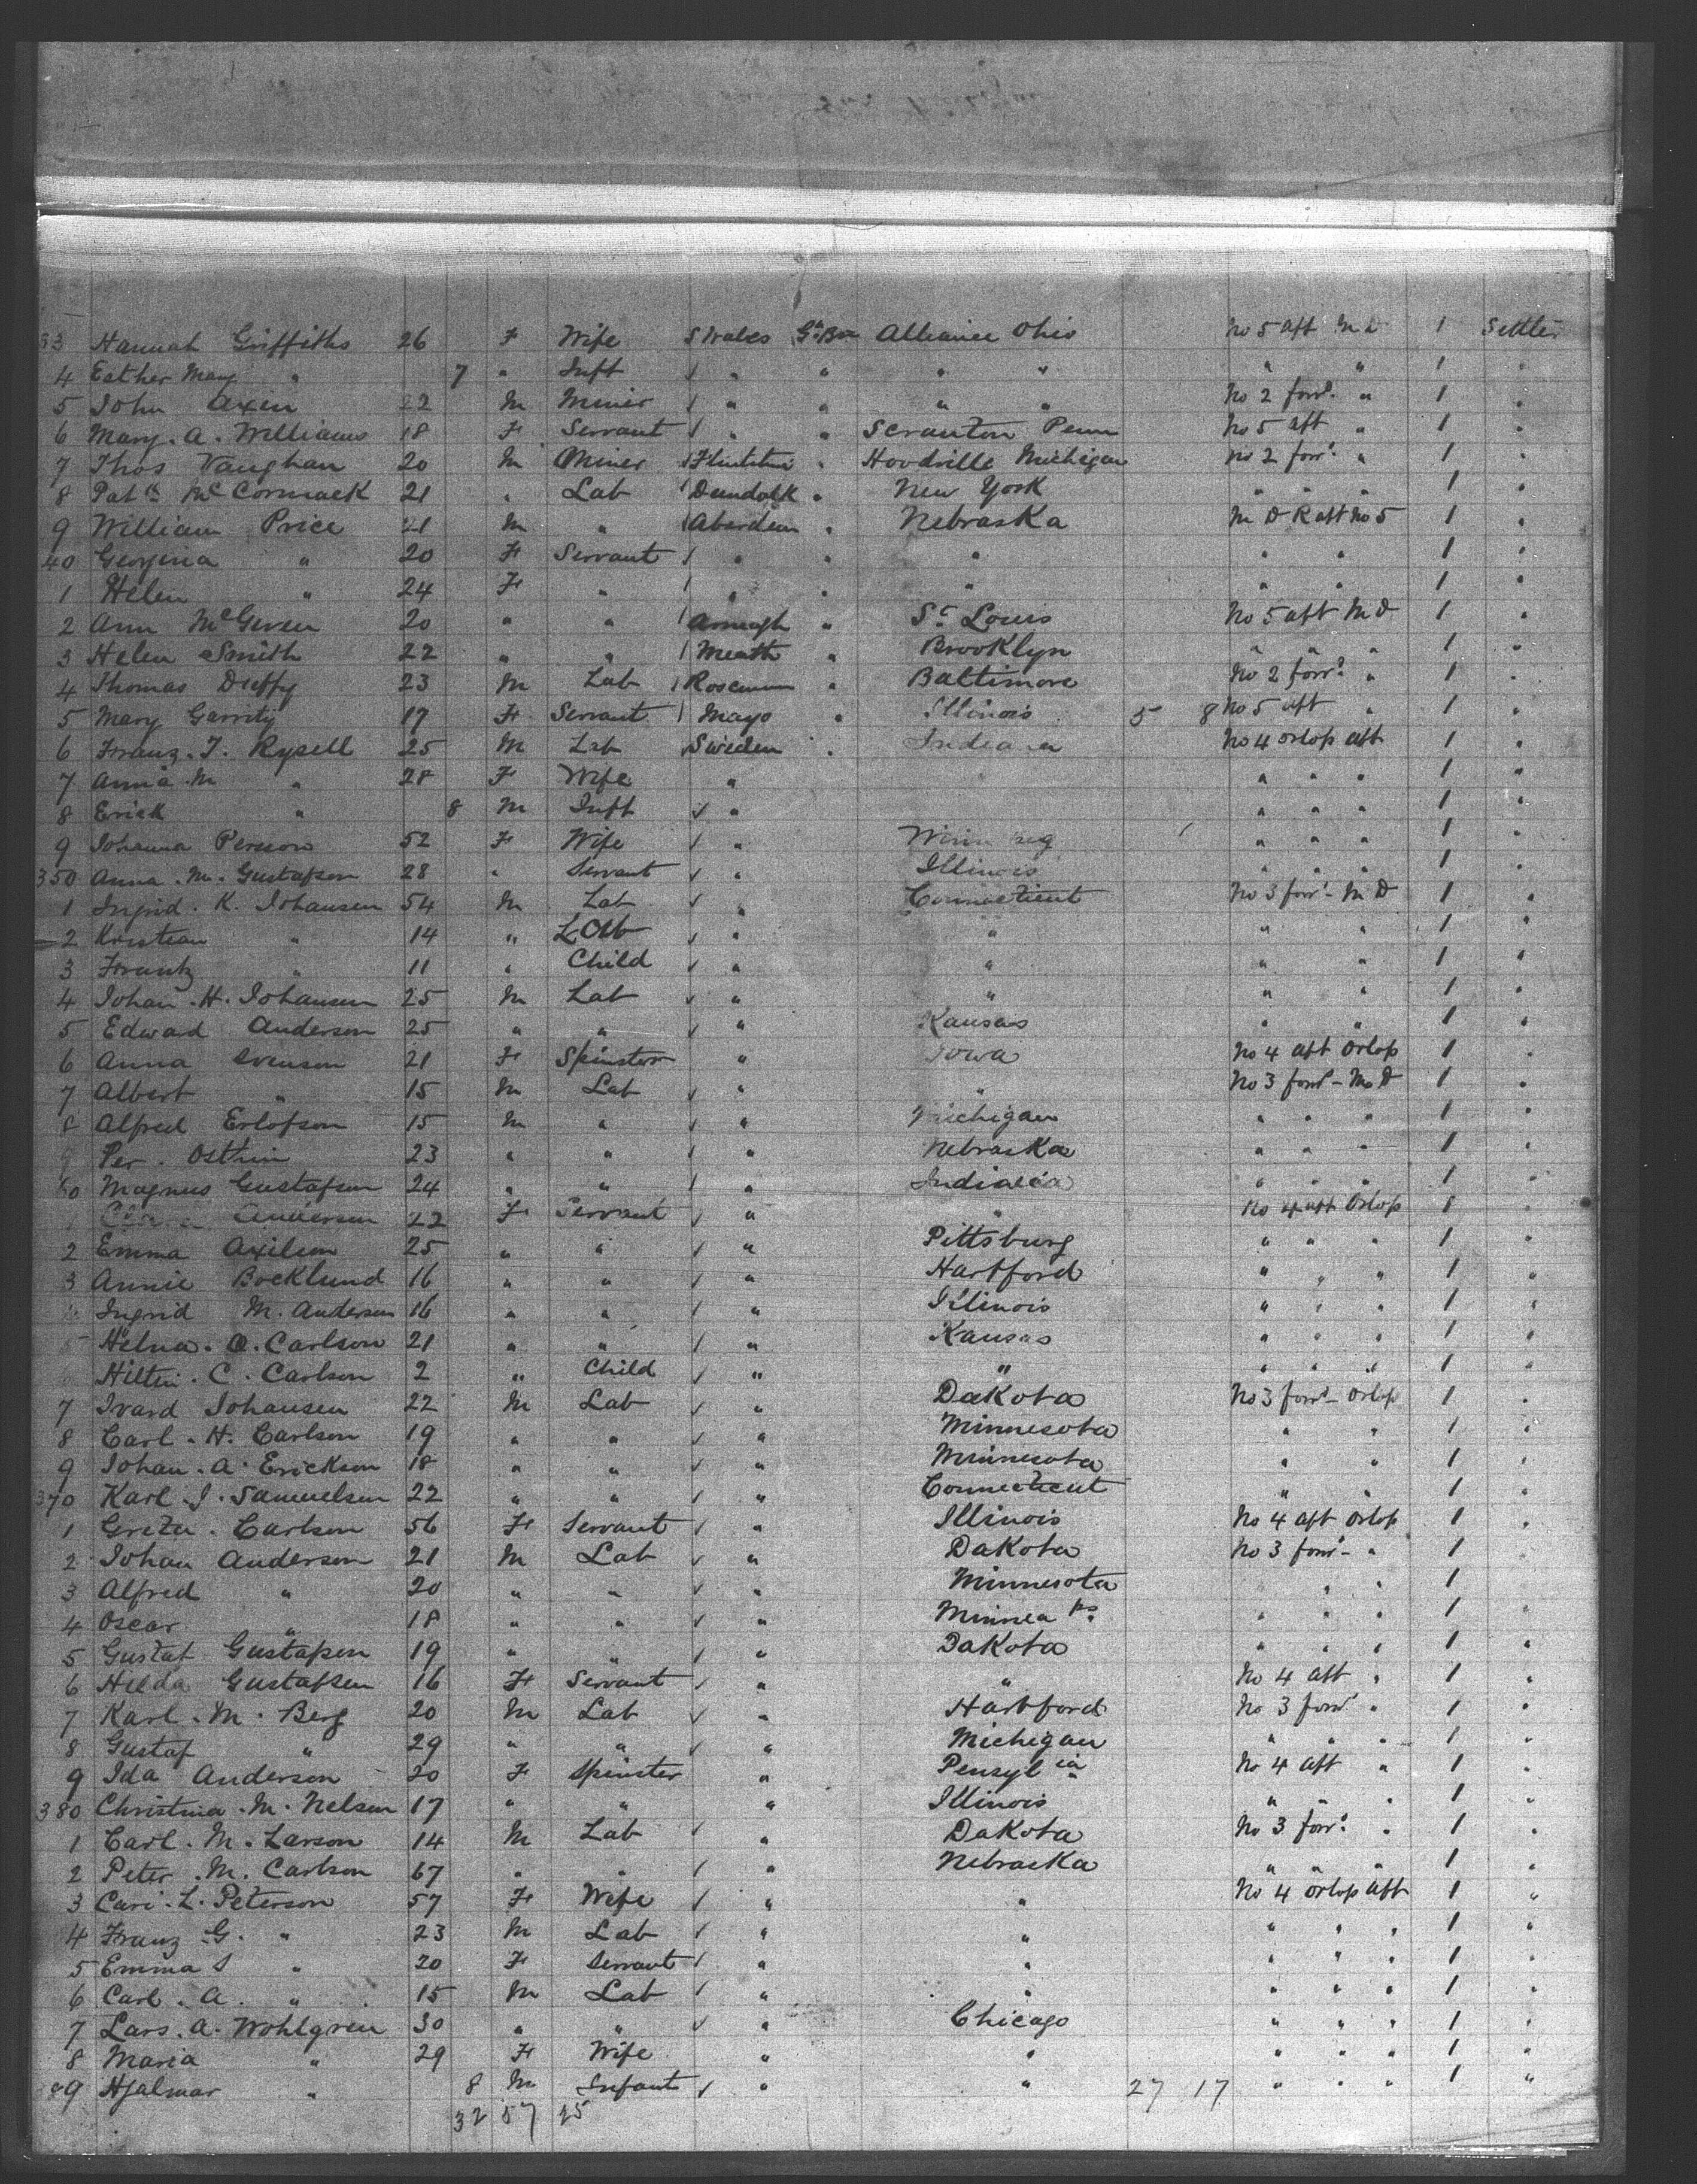 33 Hannah Griffiths 26 F Wife S Wales Gt Brn Alliance Ohio No 5 aft M D 1 Settler
4 Esther May " 7 " Inft " " " " " " 1 "
5 John Axen 22 M Miner " " " " No 2 forwd " 1 "
6 Mary. A. Williams 18 F Servant " " Scranton Penn No 5 aft " 1 "
7 Thos Vaughan 20 M Miner " Michigan No 2 forwd " 1 "
8 Patk McCormack 21 " Lab Dundalk " New York " " " 1 "
9 William Price 21 M " Aberdeen " Nebraska M D R aft No 5 1 "
40 Georgina " 20 F Servant " " " " " 1 "
1 Helen " 24 F " " " " " " 1 "
2 Ann McGeven 20 " " Armagh " St Louis No 5 aft M D 1 "
3 Helen Smith 22 " " Meath " Brooklyn " " " 1 "
4 Thomas Duffy 23 M Lab " Baltimore No 2 forwd " 1 "
5 Mary Garrity 17 F Servant Mayo " Illinois 5 8 No 5 aft " 1 "
6 Franz. J. Rysell 25 M Lab Sweden " Indiana No 4 orlop aft 1 "
7 Anna M " 28 F Wife " " " " 1 "
8 Erick " 8 M Inft " " " " 1 "
9 Johanna Persson 52 F Wife " Winnipeg " " " 1 "
350 Anna. M. Gustafson 28 " Servant " Illinois " " " 1 "
1 Ingrid. K. Johansen 54 M Lab " Connecticut No 3 forwd - M D 1 "
2 Kristian " 14 " Lab " " " " 1 "
3 Frantz " 11 " Child " " " " 1 "
4 Johan. H. Johansen 25 M Lab " " " " 1 "
5 Edward Anderson 25 " " " Kansas " " 1 "
6 Anna Svenson 21 F Spinster " Iowa No 4 aft Orlop 1 "
7 Albert " 15 M Lab " " No 3 forwd - M D 1 "
8 Alfred Erlofson 15 M " " Michigan " " " 1 "
9 Per. Osthin 23 " " " Nebraska " " " 1 "
60 Magnus Gustafson 24 " " " Indiana " " " 1 "
1 Anderson 22 F Servant " " No 4 aft Orlop 1 "
2 Emma Axilson 25 " " " Pittsburg " " " 1 "
3 Annie Bocklund 16 " " " Hartford " " " 1 "
Ingrid M. Anderson 16 " " " Illinois " " " 1 "
5 Helna. O. Carlson 21 " " " Kansas " " " 1 "
C. Carlson 2 " Child " " " " " 1 "
7 Ivard Johansen 22 M Lab " Dakota No 3 forwd - Orlop 1 "
8 Carl. H. Carlson 19 " " " Minnesota " " 1 "
9 Johan. A. Erickson 18 " " " Minnesota " " 1 "
370 Karl. J. Samuelson 22 " " " Connecticut " " 1 "
1 Greta. Carlson 56 F Servant " Illinois No 4 aft orlop 1 "
2 Johan Anderson 21 M Lab " Dakota No 3 forwd - " 1 "
3 Alfred " 20 " " " Minnesota " " 1 "
4 Oscar " 18 " " " Minneaps " " " 1 "
5 Gustaf Gustafson 19 " " " Dakota " " " 1 "
6 Hilda Gustafson 16 F Servant " " No 4 aft " 1 "
7 Karl. M. Berg 20 M Lab " Hartford No 3 forwd " 1 "
8 Gustaf " 29 " " " Michigan " " " 1 "
9 Ida Anderson 20 F Spinster " Pensylia No 4 aft " 1 "
380 Christina. M. Nelson 17 " " " Illinois " " " 1 "
1 Carl. M. Larson 14 M Lab " Dakota No 3 forwd " 1 "
2 Peter. M. Carlson 67 " " " Nebraska " " " 1 "
3 Cari. L. Peterson 57 F Wife " " No 4 orlop aft 1 "
4 Franz G. " 23 M Lab " " " " " 1 "
5 Emma S " 20 F Servant " " " " " 1 "
6 Carl. A. " 15 M Lab " " " " " 1 "
7 Lars. A. Wohlgren 30 " " " Chicago " " " 1 "
8 Maria " 29 F Wife " " " " " 1 "
89 Hjalmar " 8 M Infant " " 27 17 " " " 1 "
32 57 25